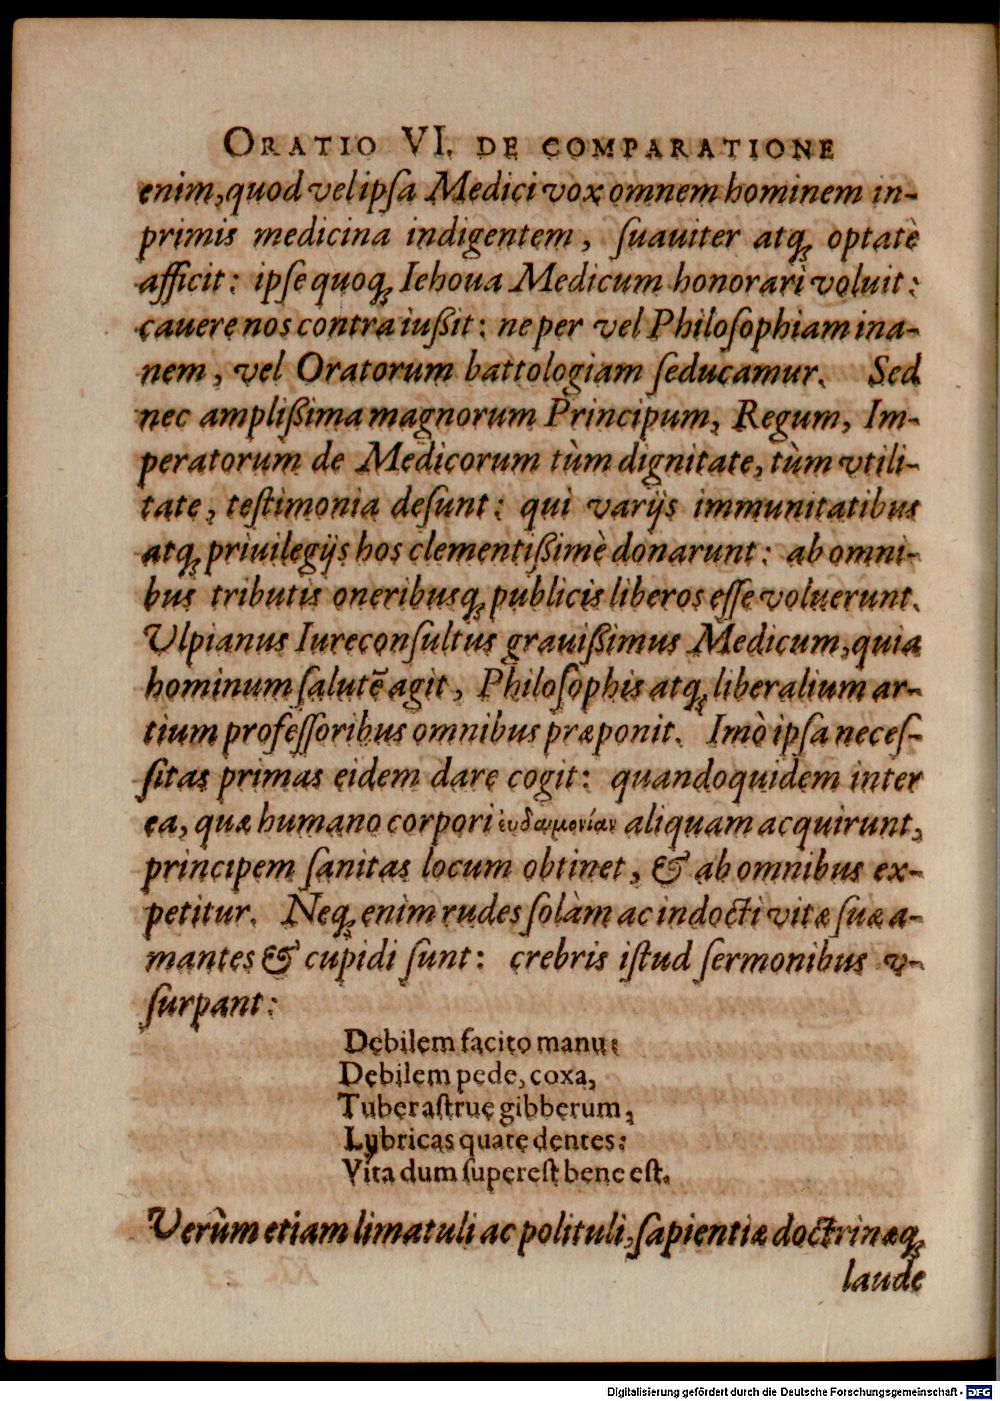 ORATIO VI. DE COMPARATIONE
enim, quod vel ipſa Medici vox omnem hominem in-
primis medicina indigentem, ſuauiter atq́ꝫ optatè
afficit: ipſe quoqꝫ Iehoua Medicum honorari voluit:
cauere nos contra iußit: ne per vel Philoſophiam ina-
nem, vel Oratorum battologiam ſeducamur. Sed
nec amplißima magnorum Principum, Regum, Im-
peratorum de Medicorum tùm dignitate, tùm vtili-
tate, teſtimonia deſunt: qui varijs immunitatibus
atqꝫ priuilegijs hos clementißimè donarunt: ab omni-
bus tributis oneribusqꝫ publicis liberos eſſe voluerunt.
Vlpianus Iureconſultus grauißimus Medicum, quia
hominum ſalutē agit, Philoſophis atqꝫ liberalium ar-
tium profeſſoribus omnibus præponit. Imò ipſa neceſ-
ſitas primas eidem dare cogit: quandoquidem inter
ea, quæ humano corpori ευδαιμονίαν aliquam acquirunt,
principem ſanitas locum obtinet, & ab omnibus ex-
petitur. Neqꝫ enim rudes ſolàm ac indocti vitæ ſuæ a-
mantes & cupidi ſunt: crebris iſtud ſermonibus v-
ſurpant:
Debilem facito manu:
Debilem pede, coxa,
Tuber aſtrue gibberum,
Lubricas quate dentes:
Vita dum ſupereſt bene eſt.
Verùm etiam limatuli ac polituli, ſapientiæ doctrinæqꝫ
laude
Digitalisierung gefördert durch die Deutsche Forschungsgemeinschaft - DFG